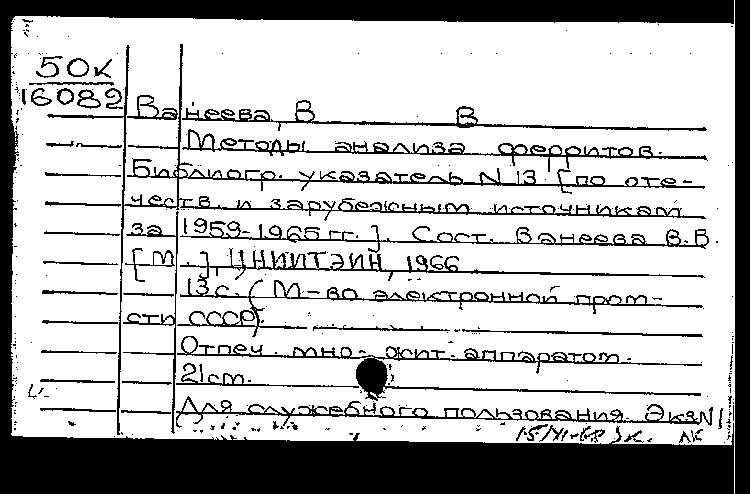 50к
16082
Ванеева, В В
Методы анализа ферритов.
Библиогр. указатель N 13 [по оте-
честв. и зарубежным источникам
за 1959-1965 гг.]. Сост. Ванеева В.В.
[М.], ЦНИИТЭИН, 1966
13 с. (М-во электронной пром-
сти СССР).
Отпеч. множит. аппаратом.
21 см.
Для служебного пользования Экз N1